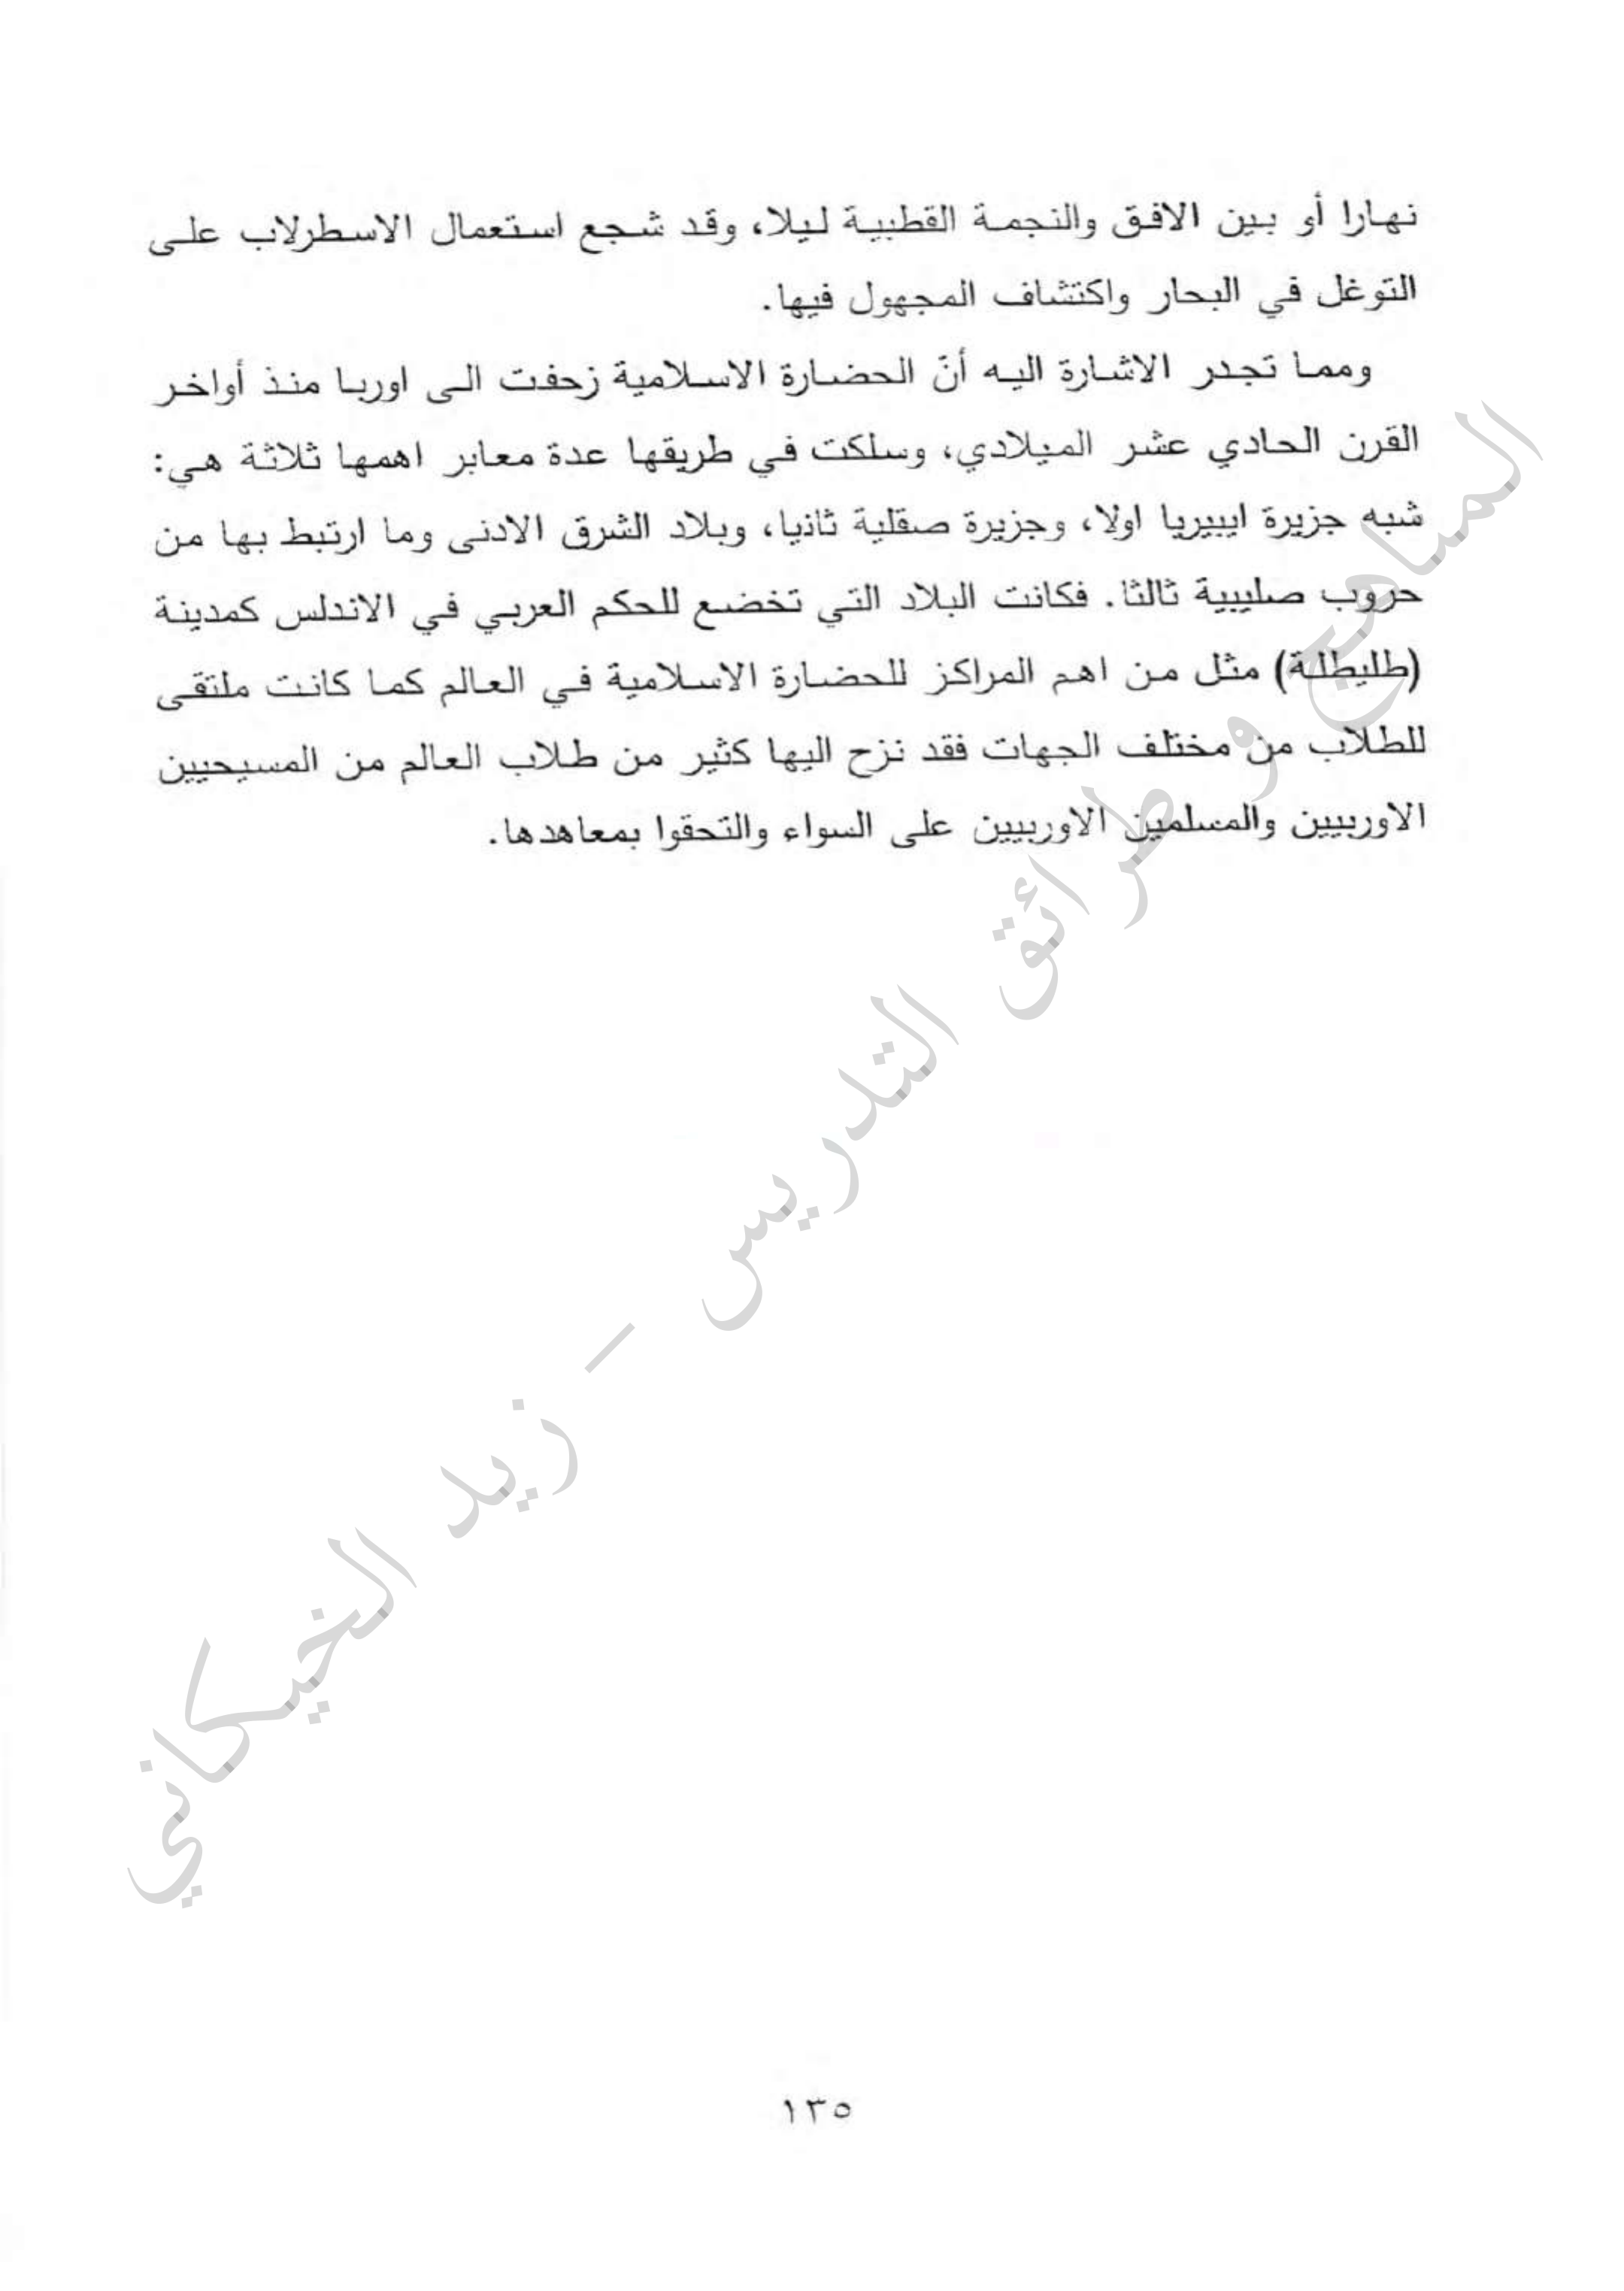 نهارا أو بين الافق والنجمة القطبية ليلا، وقد شجع استعمال الاسطرلاب على
التوغل في البحار واكتشاف المجهول فيها.
ومما تجدر الاشارة اليه أنّ الحضارة الاسلامية زحفت الى اوربا منذ أواخر
القرن الحادي عشر الميلادي، وسلكت في طريقها عدة معابر اهمها ثلاثة هي:
شبه جزيرة ايبيريا اولا، وجزيرة صقلية ثانيا، وبلاد الشرق الادنى وما ارتبط بها من
حروب صليبية ثالثا. فكانت البلاد التي تخضع للحكم العربي في الاندلس كمدينة
(طليطلة) مثل من اهم المراكز للحضارة الاسلامية في العالم كما كانت ملتقى
للطلاب من مختلف الجهات فقد نزح اليها كثير من طلاب العالم من المسيحيين
الاوربيين والمسلمين الاوربيين على السواء والتحقوا بمعاهدها.
المناهج و طرائق التدريس – زيد الخيكاني
١٣٥